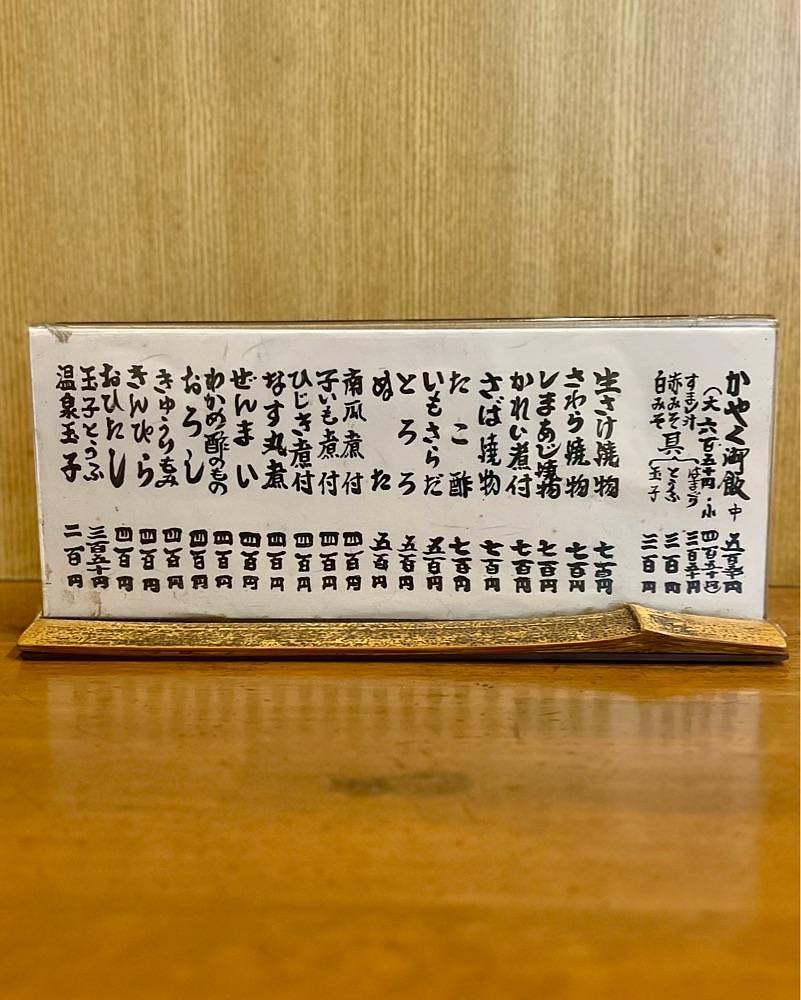 かやく御飯 中 五百五十円
(大 六百五十円・小 四百五十円)
すまし汁 三百五十円
赤みそ 具 (はまぐり とうふ 玉子) 三百円
白みそ 三百円
生さけ焼物 七百円
さわら焼物 七百円
しまあじ焼物 七百円
かれい煮付 七百円
さば焼物 七百円
たこ酢 七百円
いもさらだ 五百円
とろろ 五百円
ぬた 五百円
南瓜煮付 四百円
子いも煮付 四百円
ひじき煮付 四百円
なす丸煮 四百円
ぜんまい 四百円
わかめ酢のもの 四百円
おろし 四百円
きゅうりもみ 四百円
きんぴら 四百円
おひたし 四百円
玉子とうふ 三百五十円
温泉玉子 二百円